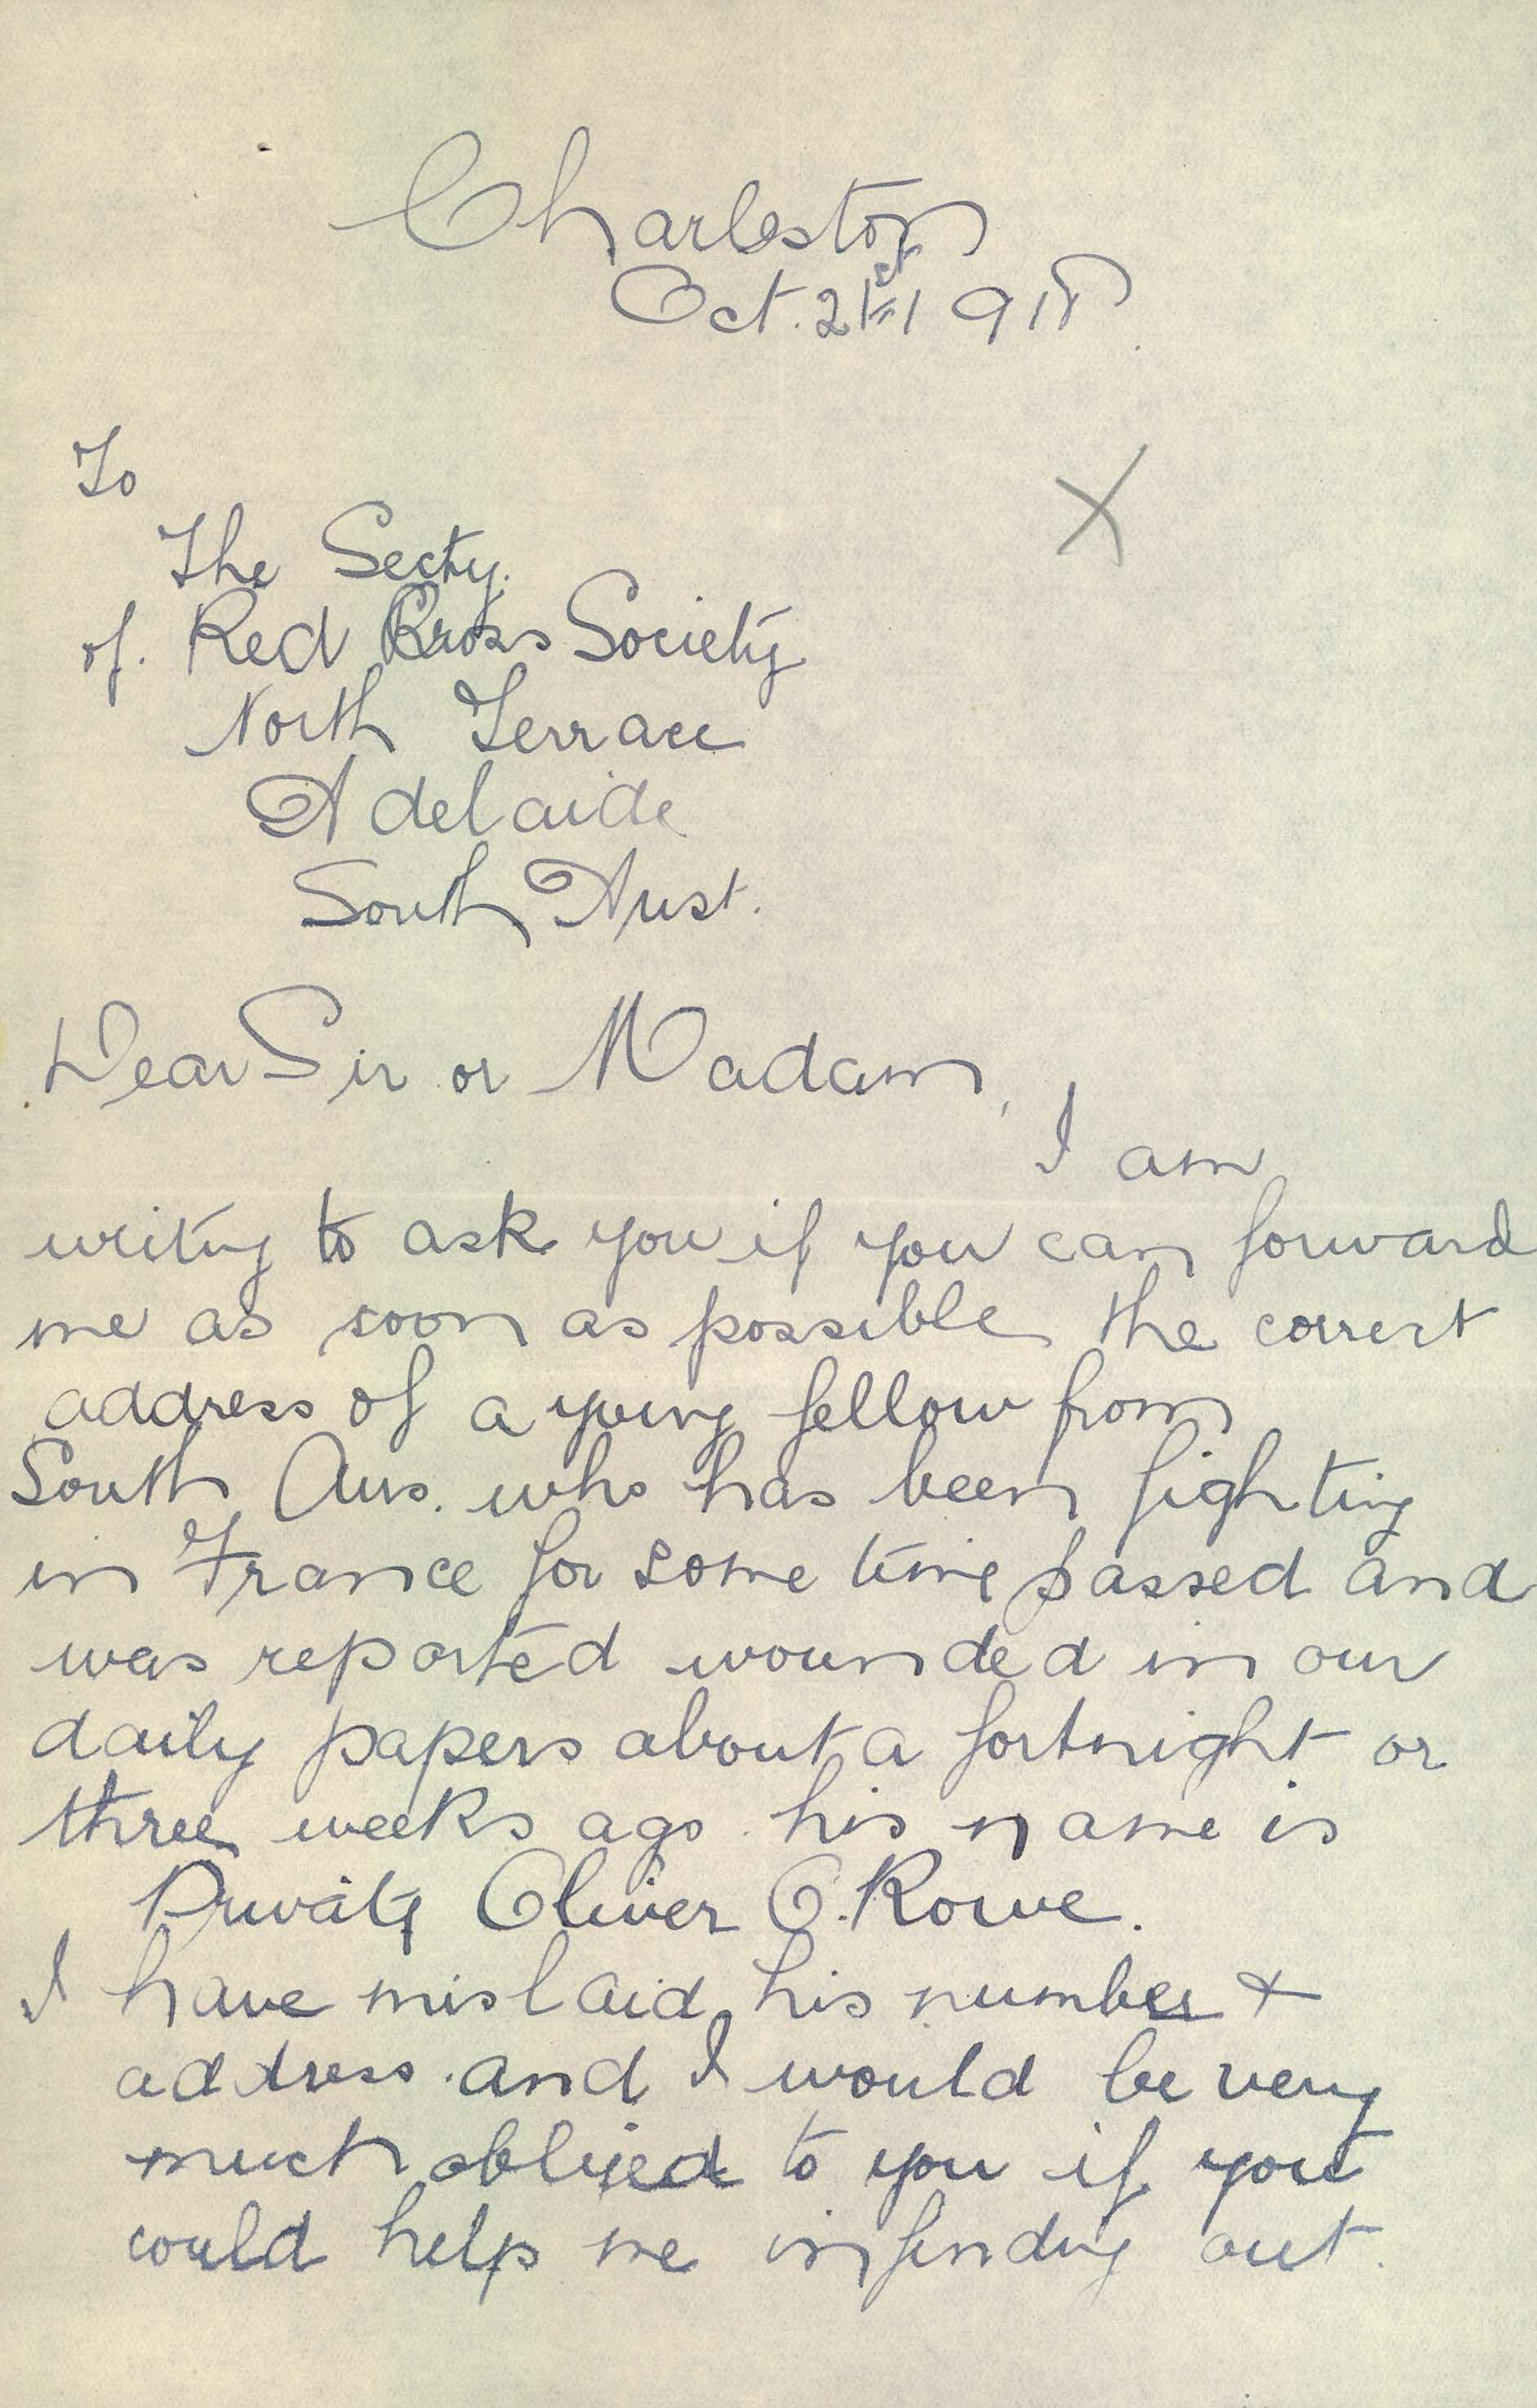 Charleston
Oct. 21st 1918.
X
To
The Secty.
of. Red Cross Society
North Terrace
Adelaide
South Aust.
Dear Sir or Madam,
I am
writing to ask you if you can forward
me as soon as possible the correct
address of a young fellow from
South Aus. who has been fighting
in France for some time passed and
was reported wounded in our
daily papers about a fortnight or
three weeks ago his name is
Private Oliver C. Rowe.
I have mislaid his number +
address. and I would be very
much obliged to you if you
could help me in finding out.